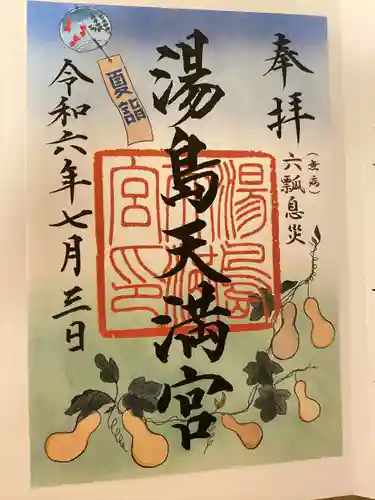 奉拝
(無病)
六瓢息災
湯島天満宮
湯島天満宮印
夏詣
令和六年七月三日